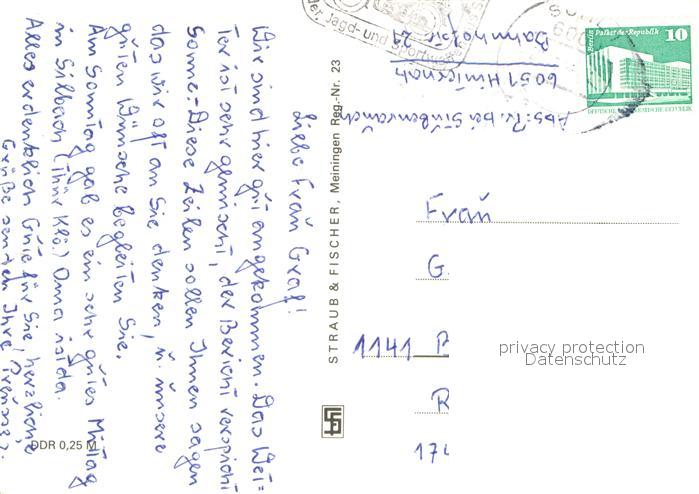 Liebe Frau Graf!
Wir sind hier gut angekommen. Das Wet=
ter ist sehr gemischt, der Bericht verspricht
Sonne. Diese Zeilen sollen Ihnen sagen
das wir oft an Sie denken, u. unsere
guten Wünsche begleiten Sie.
Am Sonntag gab es ein sehr gutes Mittag
in Silbach (Thür Klö.) Oma ist da.
Alles erdenklich Gute für Sie, herzliche
Grüße senden Ihre
DDR 0,25 M
STRAUB & FISCHER, Meiningen Reg.-Nr. 23
Jagd- und Sportwaffen
Abs: Pr. bei
6051 Hinternah
Bahnhofstr 21
Berlin Palast der Republik
10
DEUTSCHE DEMOKRATISCHE REPUBLIK
SUHL
600
Frau
G.
1141 B
R
174
privacy protection
Datenschutz